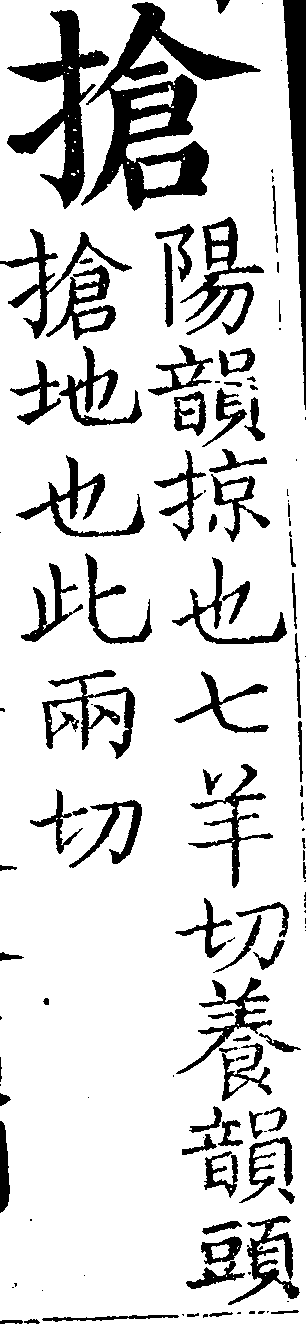 搶
陽韻掠也七羊切養韻頭
搶地也此兩切